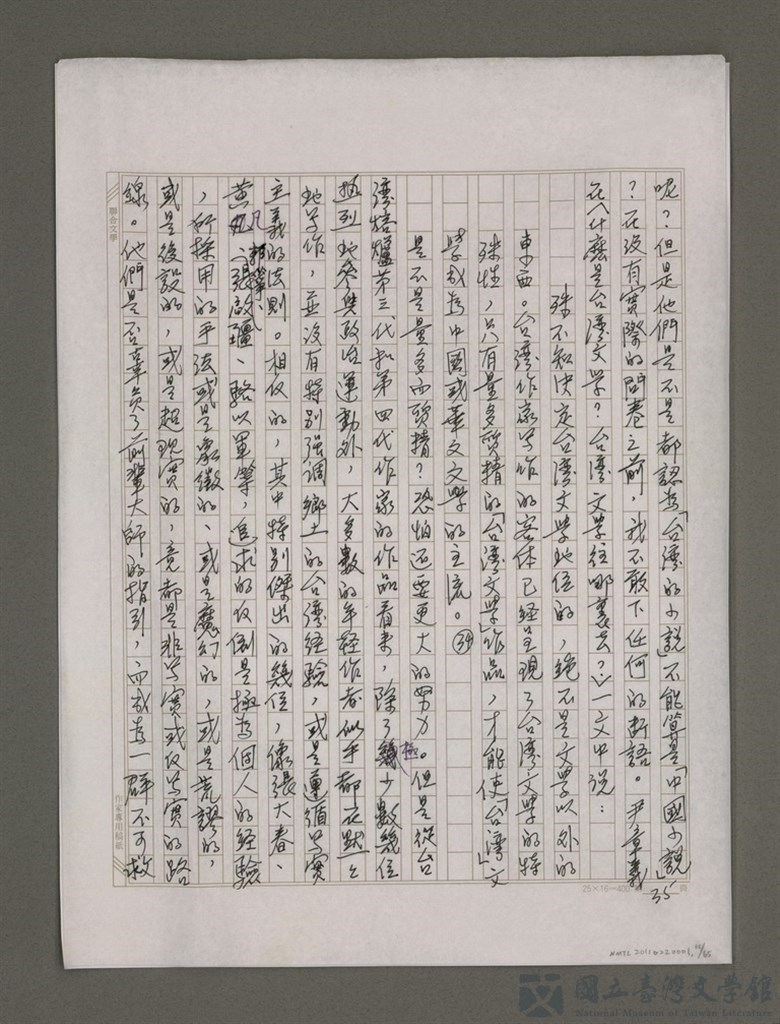 呢？但是他們是不是都認為「台灣的小說」不能算是「中國小說」
？在沒有實際的問卷之前，我不敢下任何的斷語。尹章義
在〈什麼是台灣文學？台灣文學往哪裏去？〉一文中說：
殊不知決定台灣文學地位的，絕不是文學以外的
東西。台灣作家寫作的客体已經呈現了台灣文學的特
殊性，只有量多質精的「台灣文學」作品，才能使「台灣文
學」成為中國或華文文學的主流。㉞
是不是量多而質精？恐怕還要更大的努力。但是從台
灣搭爐第三代和第四代作家的作品看來，除了極少數幾位
熱烈地參與政治運動外，大多數的年輕作者似乎都在默默
地寫作，並沒有特別強調鄉土的台灣經驗，或是遵循寫實
主義的法則。相反的，其中特別傑出的幾位，像張大春、
黃凡、張啟疆、駱以軍等，追求的反倒是極為個人的經驗
，所採用的手法或是象徵的、或是魔幻的，或是荒謬的，
或是後設的，或是超現實的，竟都是非寫實或反寫實的路
線。他們是否辜負了前輩大師的指引，而成為一群不可救
35
聯合文學
作家專用稿紙
25×16=400
頁
NMTL 20110220001, /65
國立臺灣文學館
National Museum of Taiwan Literature